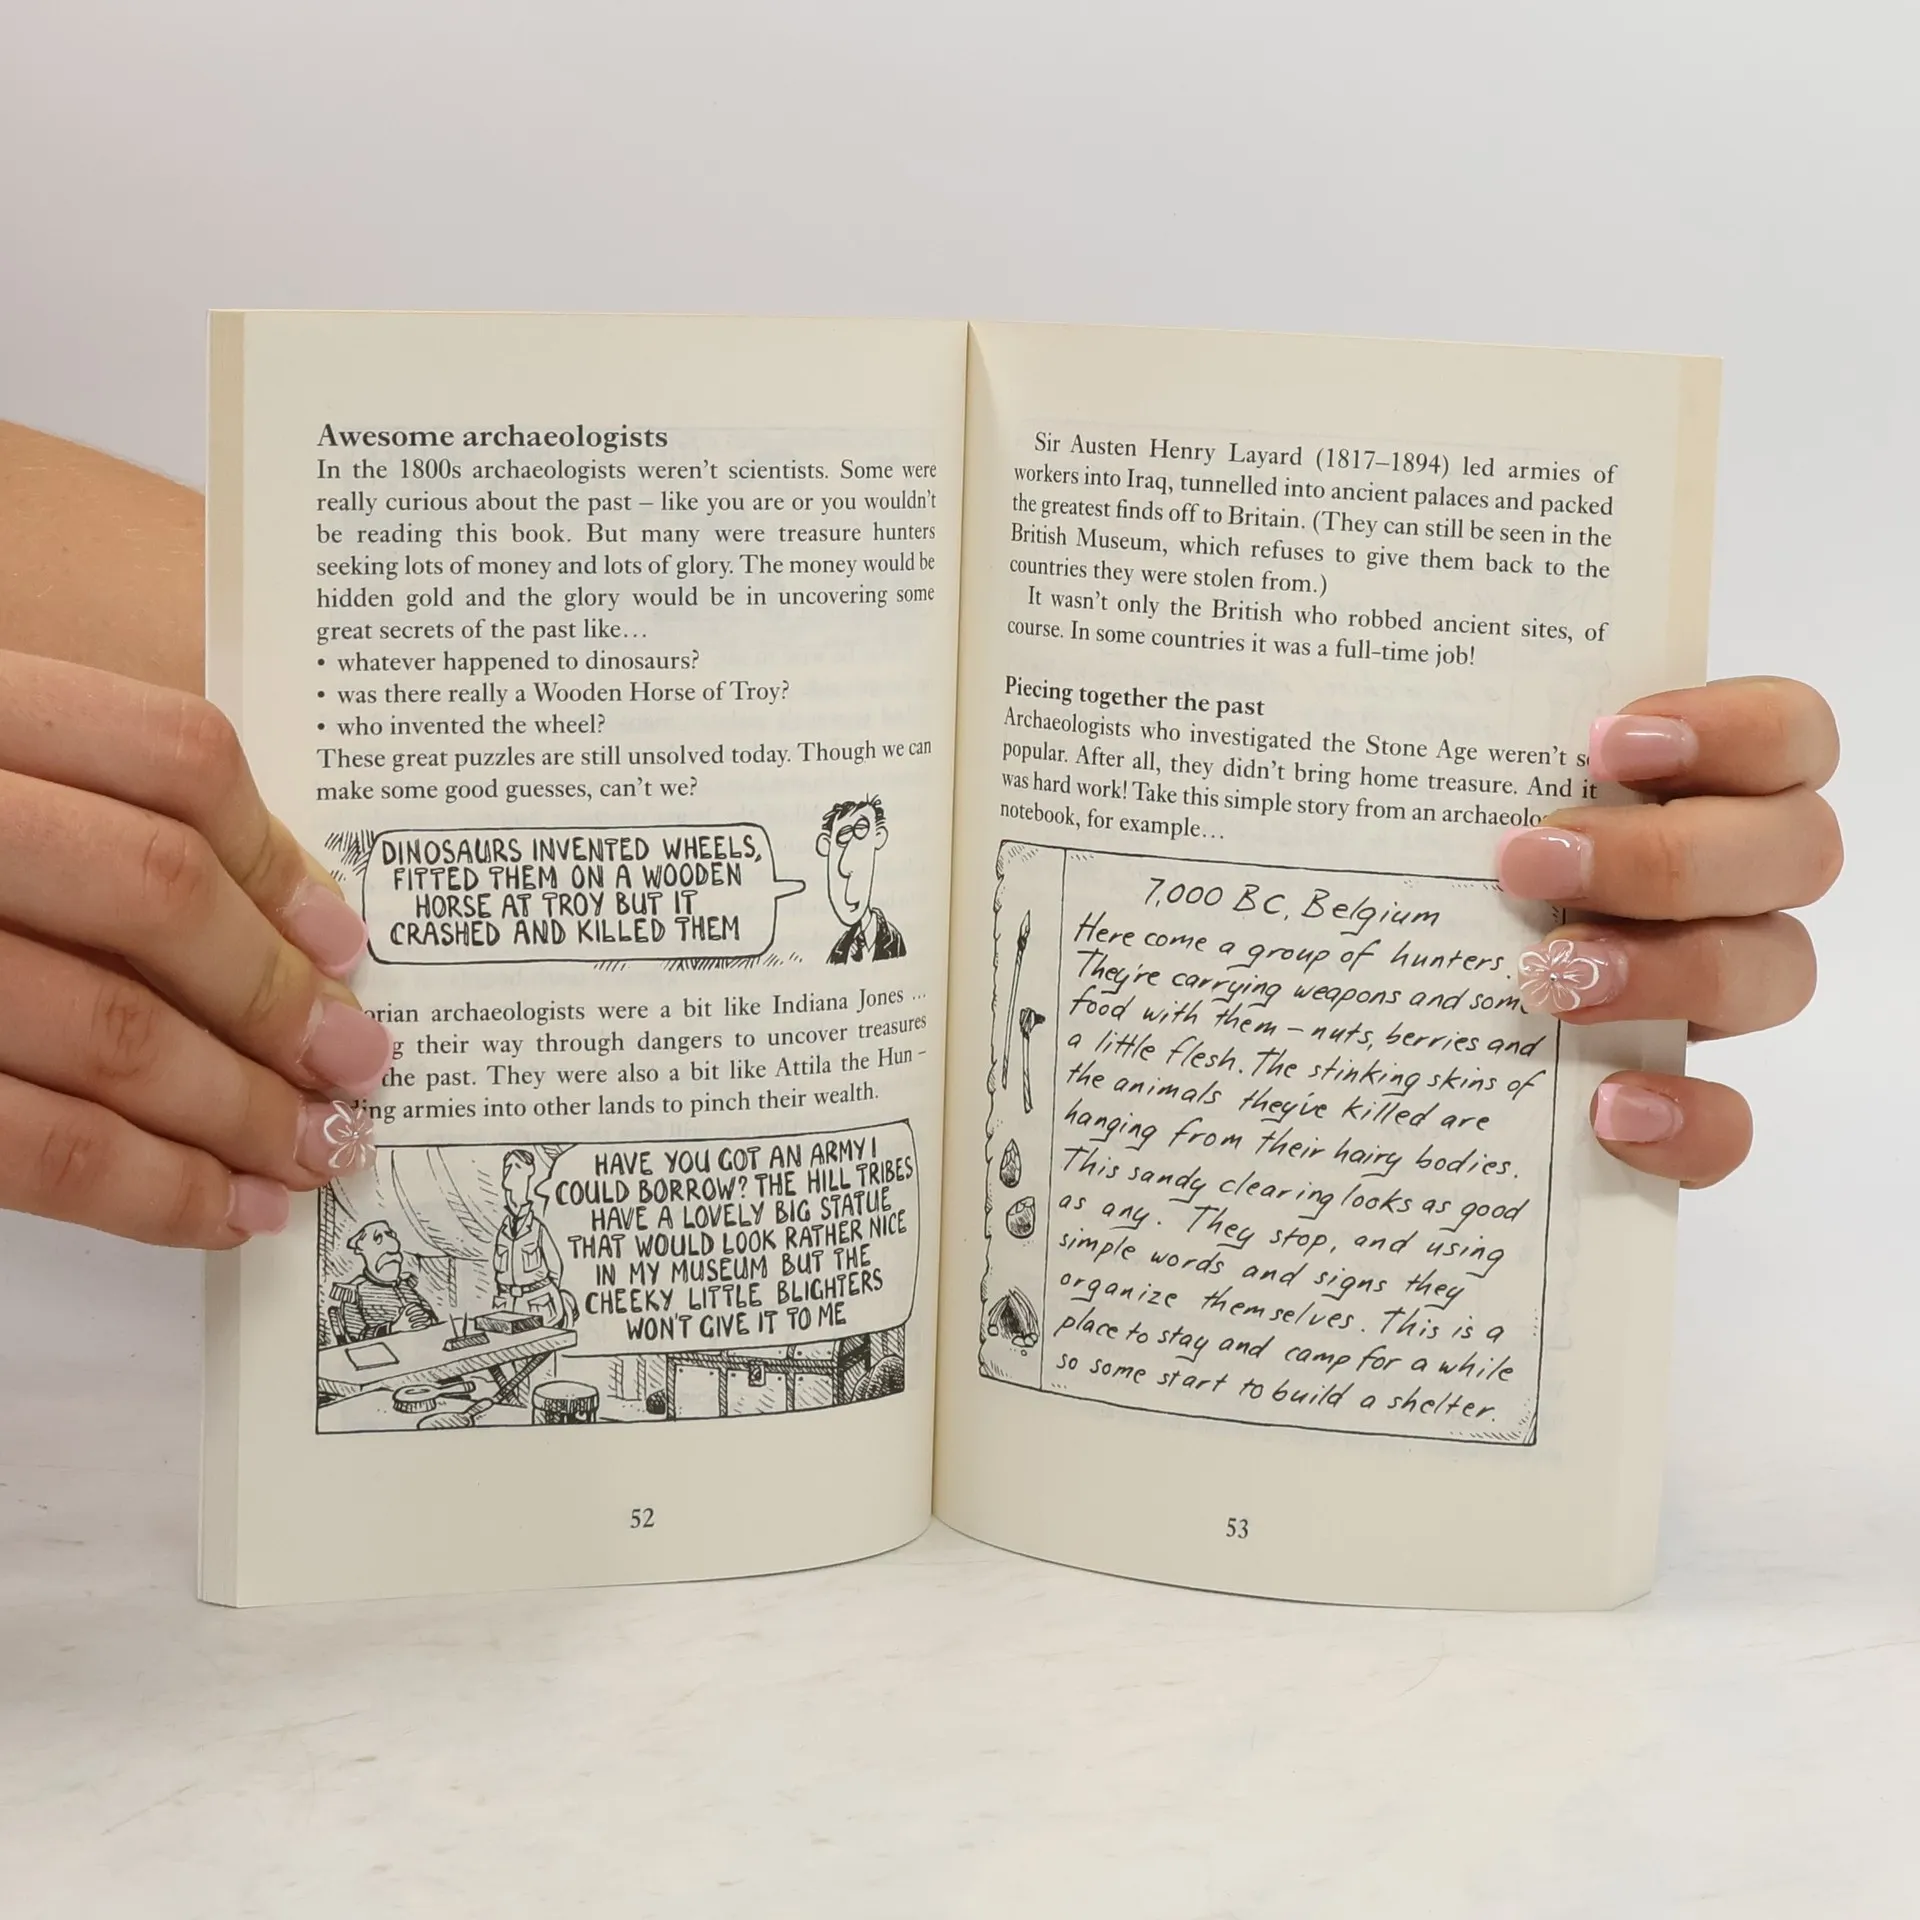 Awesome archaeologists
In the 1800s archaeologists weren't scientists. Some were
really curious about the past – like you are or you wouldn't
be reading this book. But many were treasure hunters
seeking lots of money and lots of glory. The money would be
hidden gold and the glory would be in uncovering some
great secrets of the past like…
• whatever happened to dinosaurs?
• was there really a Wooden Horse of Troy?
• who invented the wheel?
These great puzzles are still unsolved today. Though we can
make some good guesses, can't we?
DINOSAURS INVENTED WHEELS,
FITTED THEM ON A WOODEN
HORSE AT TROY BUT IT
CRASHED AND KILLED THEM
archaeologists were a bit like Indiana Jones …
their way through dangers to uncover treasures
the past. They were also a bit like Attila the Hun –
armies into other lands to pinch their wealth.
HAVE YOU GOT AN ARMY I
COULD BORROW? THE HILL TRIBES
HAVE A LOVELY BIG STATUE
THAT WOULD LOOK RATHER NICE
IN MY MUSEUM BUT THE
CHEEKY LITTLE BLIGHTERS
WON'T GIVE IT TO ME
52
Sir Austen Henry Layard (1817–1894) led armies of
workers into Iraq, tunnelled into ancient palaces and packed
the greatest finds off to Britain. (They can still be seen in the
British Museum, which refuses to give them back to the
countries they were stolen from.)
It wasn't only the British who robbed ancient sites, of
course. In some countries it was a full-time job!
Piecing together the past
Archaeologists who investigated the Stone Age weren't
popular. After all, they didn't bring home treasure. And it
was hard work! Take this simple story from an
notebook, for example…
7,000 BC, Belgium
Here come a group of hunters.
They're carrying weapons and some
food with them – nuts, berries and
a little flesh. The stinking skins of
the animals they've killed are
hanging from their hairy bodies.
This sandy clearing looks as good
as any. They stop, and using
simple words and signs they
organize themselves. This is a
place to stay and camp for a while
so some start to build a shelter.
53